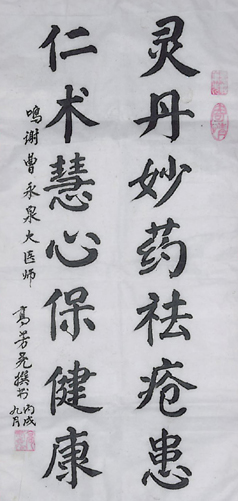 灵丹妙药祛疮患
仁术慧心保健康
鸣谢曹永泉大医师
高芳尧撰书
丙戌
九月